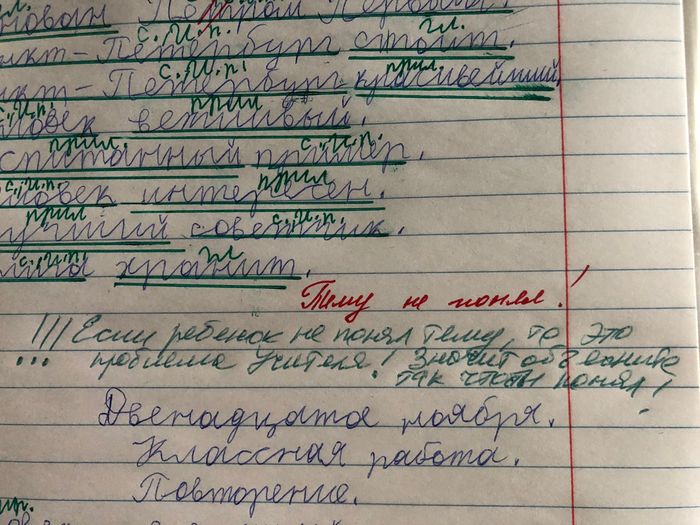 гл.
нован Петром Первым.
с.И.п. гл.
нкт-Петербург стоит.
с.И.п. прил.
нкт-Петербург красивейший,
с.И.п. прил
ловек вежливый.
прил. с.И.п.
спитанный пример.
с.И.п. прил
ловек интересен.
прил с.И.п.
учший советчик.
с.И.п. гл
хранит.
Тему не понял!
!!! Если ребенок не понял тему, то это
... проблема учителя! Значит объясните
так чтобы понял!
Двенадцатое ноября.
Классная работа.
Повторение.